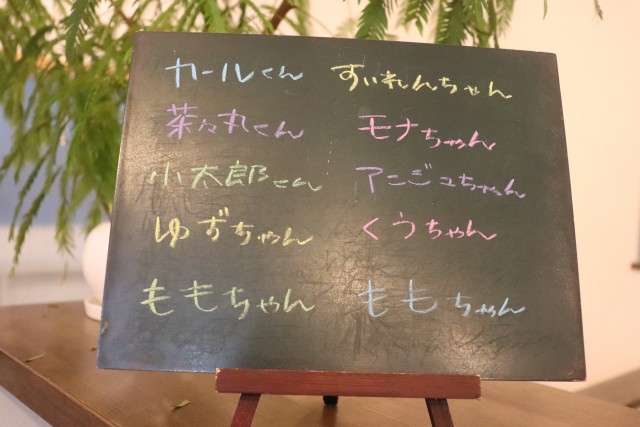 カールくん すいれんちゃん
茶々丸くん モナちゃん
小太郎くん アンジュちゃん
ゆずちゃん くうちゃん
ももちゃん ももちゃん